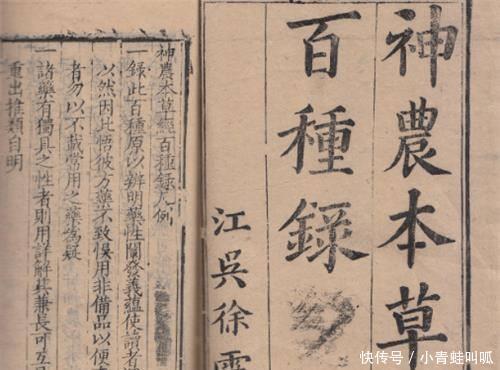 神農本草
百種錄
江吳徐
神農本草經百種錄凡例
一錄此百種原以辨明藥性闡發義蘊使讀者
以然因此悟彼方藥不致悞用非備品以便
者勿以不載常用之藥為疑
一諸藥有獨具之性者則用詳解其兼長可互
重出推類自明
快传号 / 小青蛙叫呱